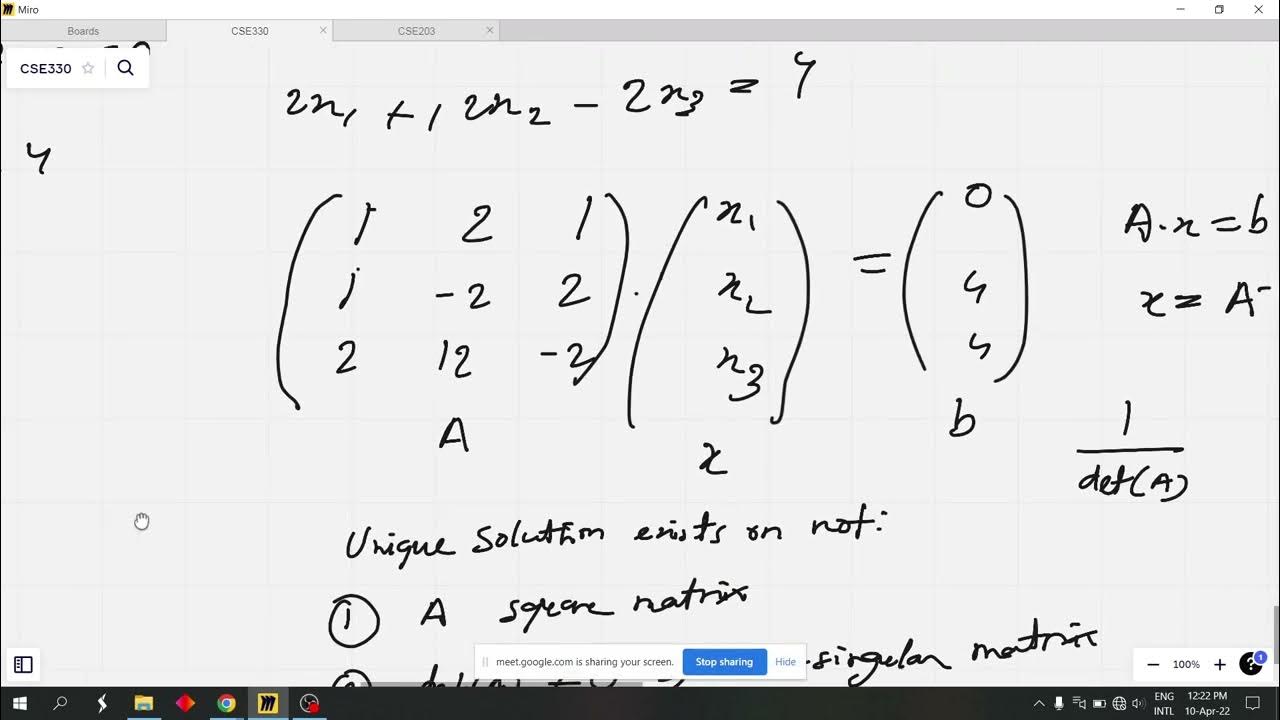 Miro
Boards
CSE330
CSE203
CSE330
2x₁ + 12x₂ - 2x₃ = 4
4
1 2 1
1 -2 2
2 12 -2
A
.
x₁
x₂
x₃
x
=
0
4
4
b
A.x=b
x = A⁻
1
det(A)
Unique Solution exists or not:
① A square matrix
-singular matrix
meet.google.com is sharing your screen.
Stop sharing
Hide
100%
1
ENG
INTL
12:22 PM
10-Apr-22